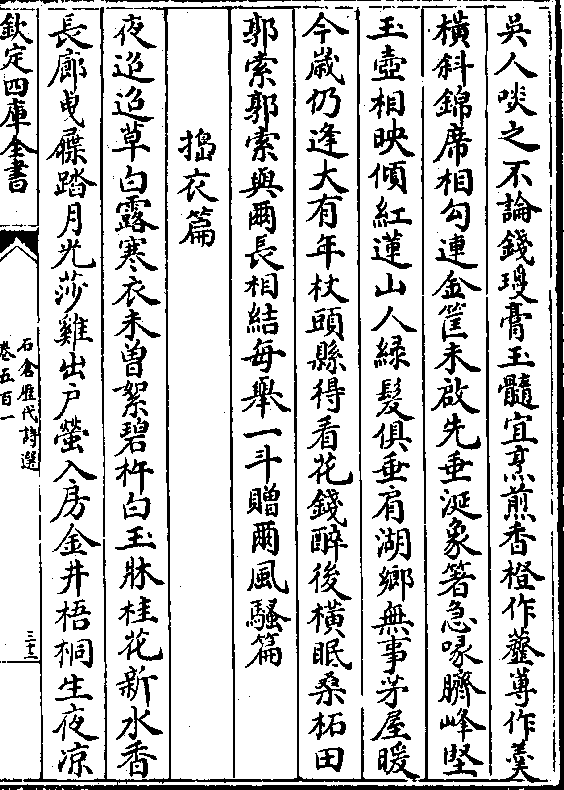 吳人啖之不論錢璊膏玉髓宜烹煎香橙作虀蓴作羹
橫斜錦席相勾連金筐未啟先垂涎象箸急喙臍峰堅
玉壺相映傾紅蓮山人綠髮俱垂肩湖鄉無事茅屋暖
今歲仍逢大有年杖頭縣得看花錢醉後橫眠桑柘田
郭索郭索與爾長相結每舉一斗贈爾風騷篇
搗衣篇
夜迢迢草白露寒衣未曾絮碧杵白玉牀桂花新水香
長廊曳屧踏月光莎雞出戶螢入房金井梧桐生夜凉
欽定四庫全書
石倉歷代詩選
卷五百一
三十二